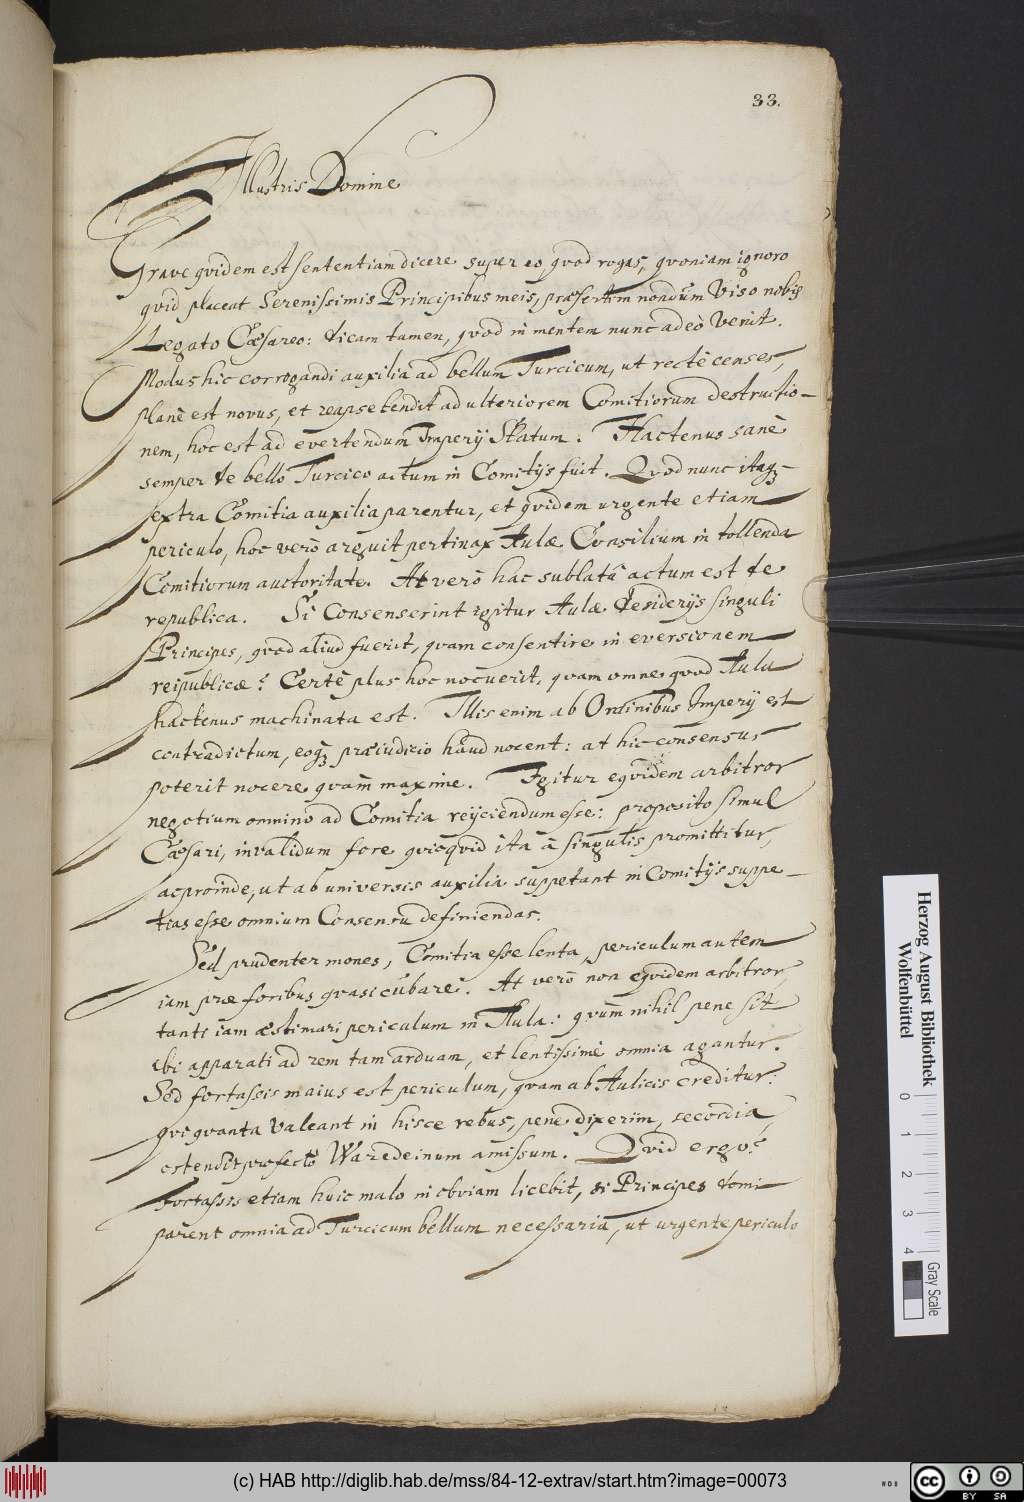 33.
Illustris Domine
Grave qvidem est sententiam dicere super eo qvod rogas, qvoniam ignoro
qvid placeat Serenissimis Principibus meis, præsertim nondum Viso nobis
Legato Cæsareo: dicam tamen, qvod in mentem nunc adeò Venit.
Modus hic corrogandi auxilia ad bellum Turcicum, ut rectè censes,
planè est novus, et reapse tendit ad ulteriorem Comitiorum destructio-
nem, hoc est ad evertendum Imperij Statum. Hactenus sanè
semper de bello Turcico actum in Comitijs fuit. Qvod nunc itaq₃
extra Comitia auxilia parentur, et qvidem urgente etiam
periculo, hoc verò arguit pertinax Aulæ Consilium in tollenda
Comitiorum auctoritate. At verò hac sublatâ actum est de
republica. Si Consenserint igitur Aulæ desiderijs singuli
Principes, qvod aliud fuerit, qvam consentire in eversionem
reipublicæ? Certè plus hoc nocuerit, qvam omne qvod Aula
hactenus machinata est. Illis enim ab Ordinibus Imperij est
contradictum, eoq₃ præiudicio haud nocent: at hic consensus
poterit nocere qvàm maxime. Igitur eqvidem arbitror
negotium omnino ad Comitia reijciendum esse: proposito simul
Cæsari, invalidum fore qvicqvid ita â singulis promittitur,
ac proinde, ut ab universis auxilia suppetant in Comitijs suppe-
tias esse omnium Consensu definiendas.
Sed prudenter mones, Comitia esse lenta, periculum autem
iam præ foribus qvasi cubare. At verò non eqvidem arbitror,
tanti iam æstimari periculum in Aula: qvùm nihil pene sit
ibi apparati ad rem tam arduam, et lentissimè omnia agantur.
Sed fortassis maius est periculum, qvam ab Aulicis creditur:
qvi qvanta Valeant in hisce rebus, pene dixerim, secordia,
ostendit profectò Waredeinum amissum. Qvid ergo?
Fortassis etiam huic malo ire obviam licebit, si Principes domi
parent omnia ad Turcicum bellum necessaria, ut urgente periculo
Herzog August Bibliothek
Wolfenbüttel
0 1 2 3 4
Gray Scale
(c) HAB http://diglib.hab.de/mss/84-12-extrav/start.htm?image=00073
cc BY SA